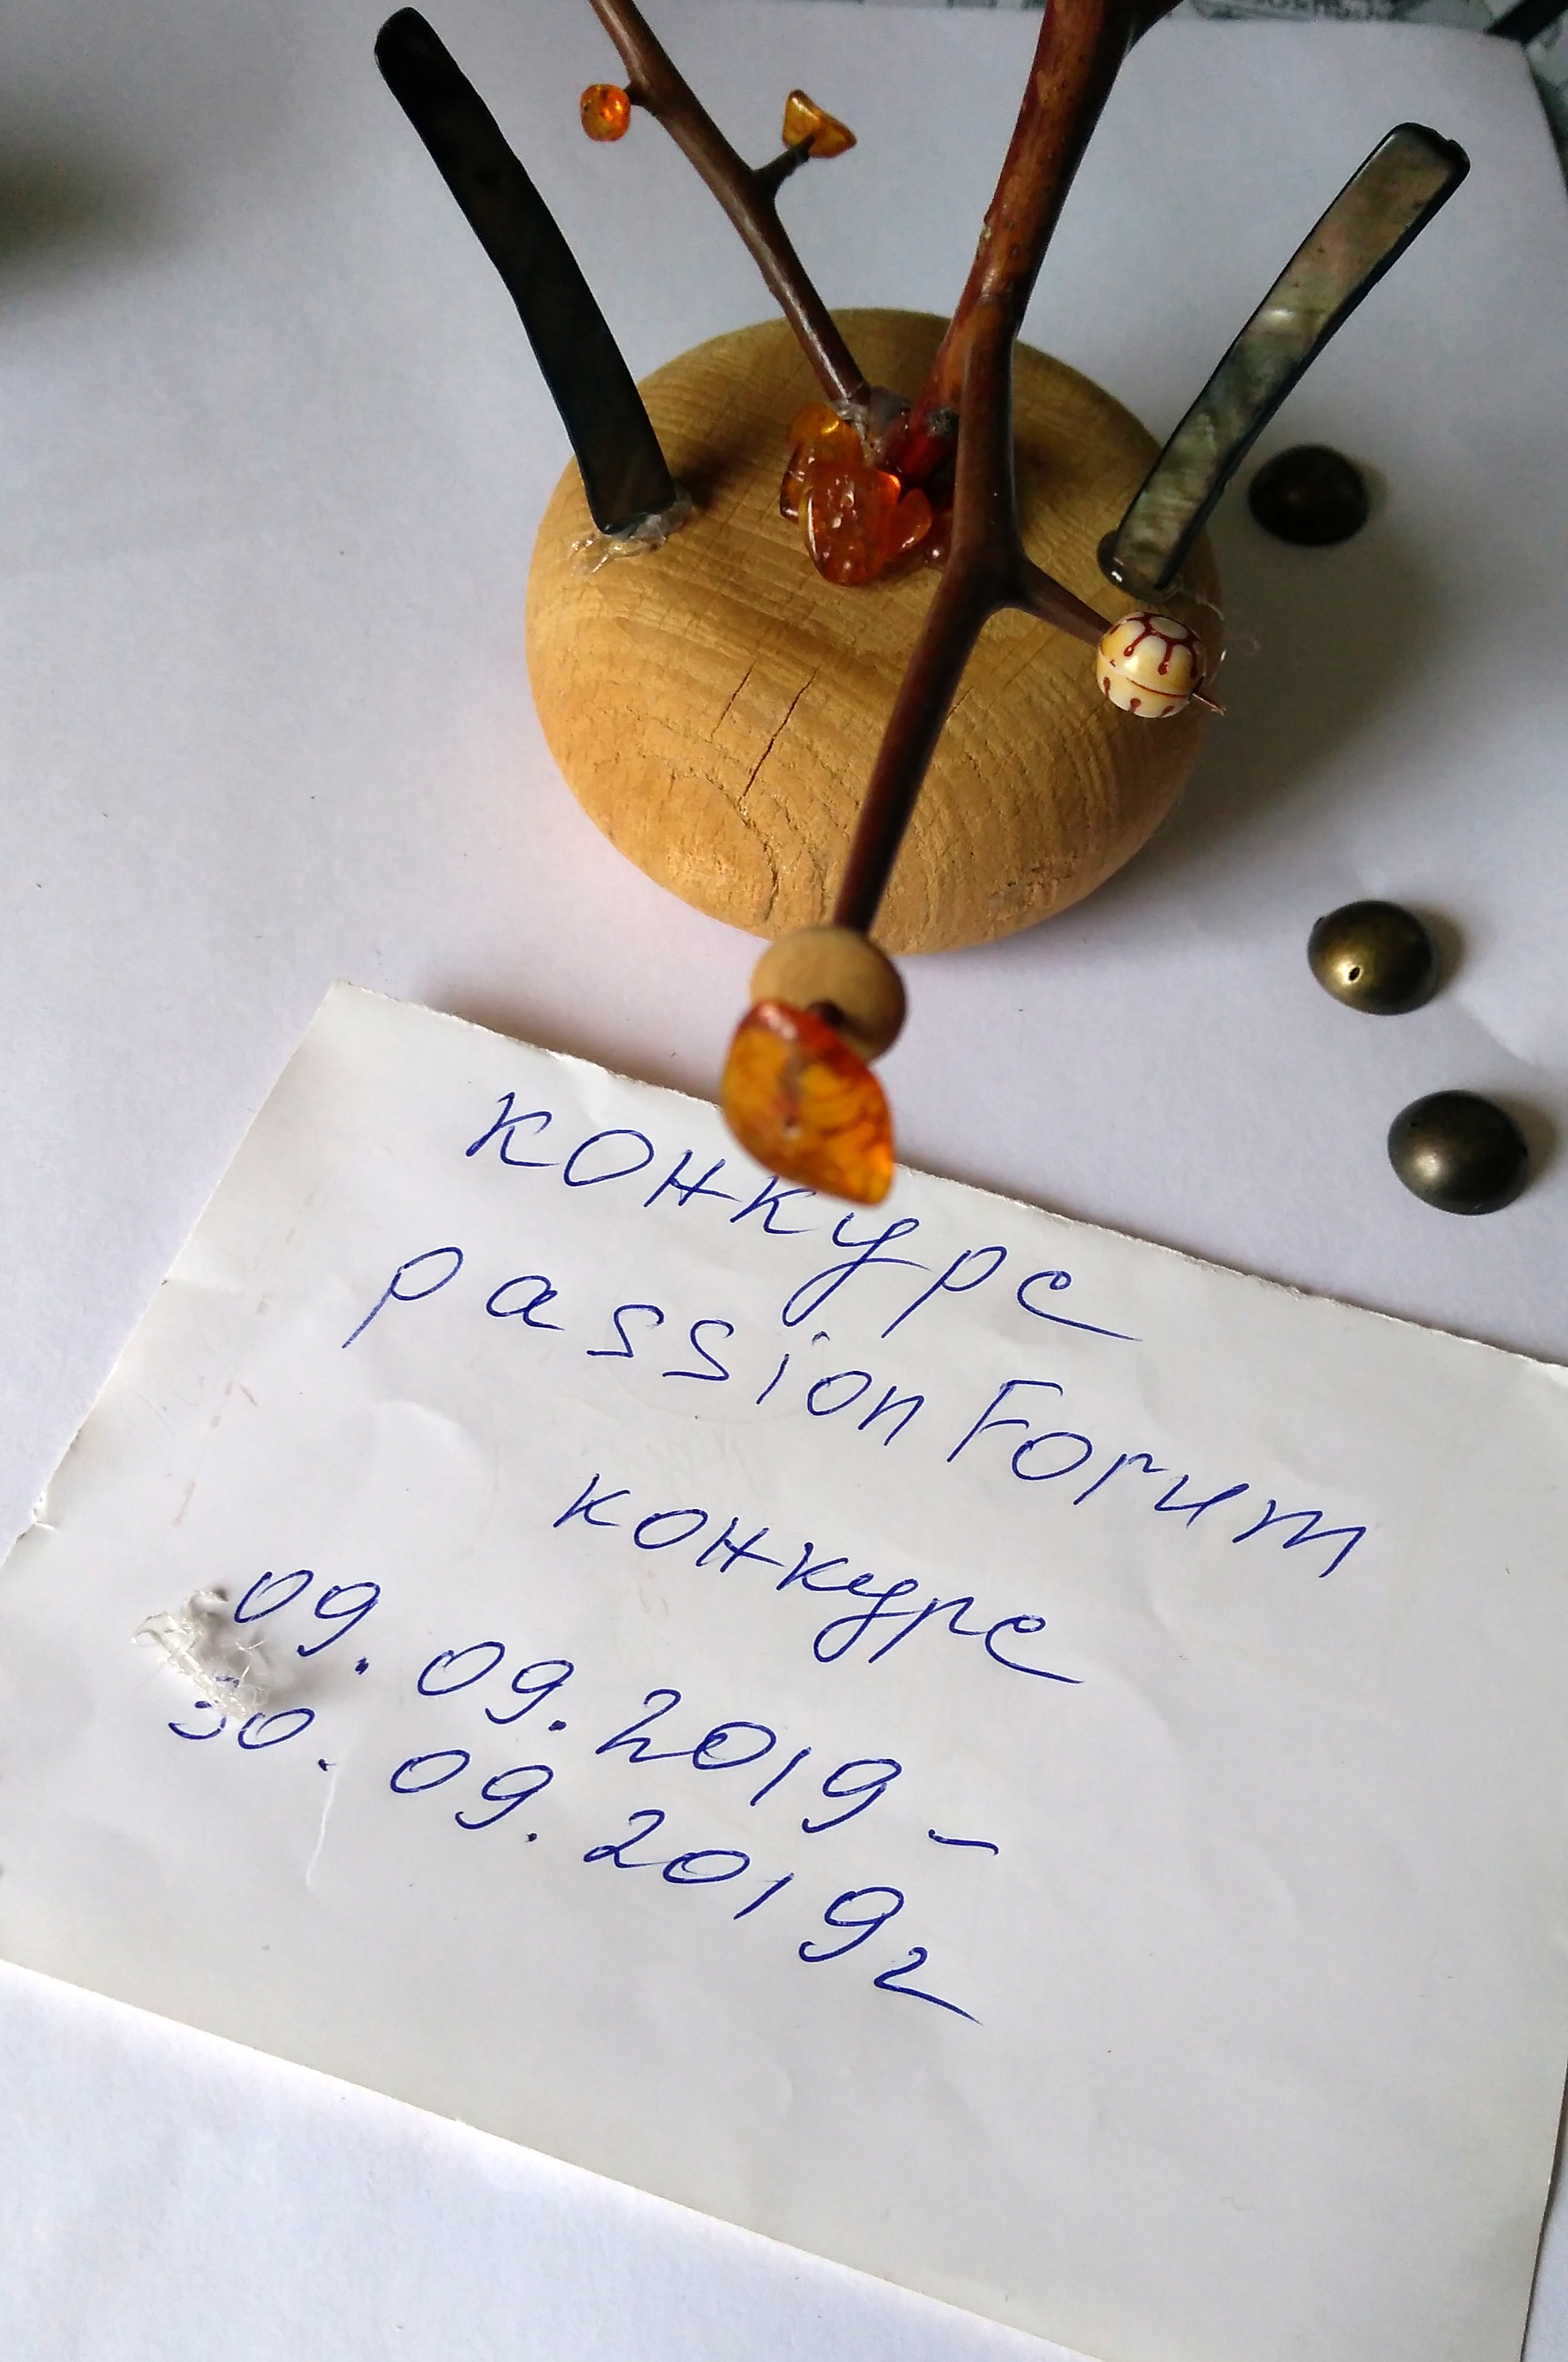 конкурс
passion Forum
конкурс
09.09.2019-
30.09.2019г